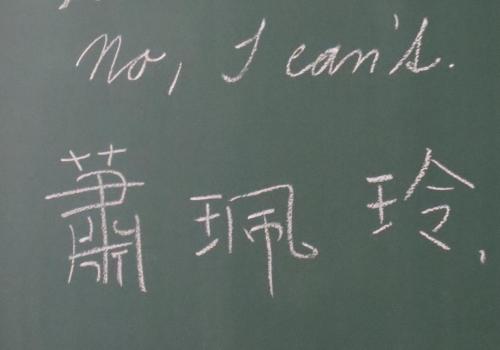 No, I can't.
蕭珮玲,